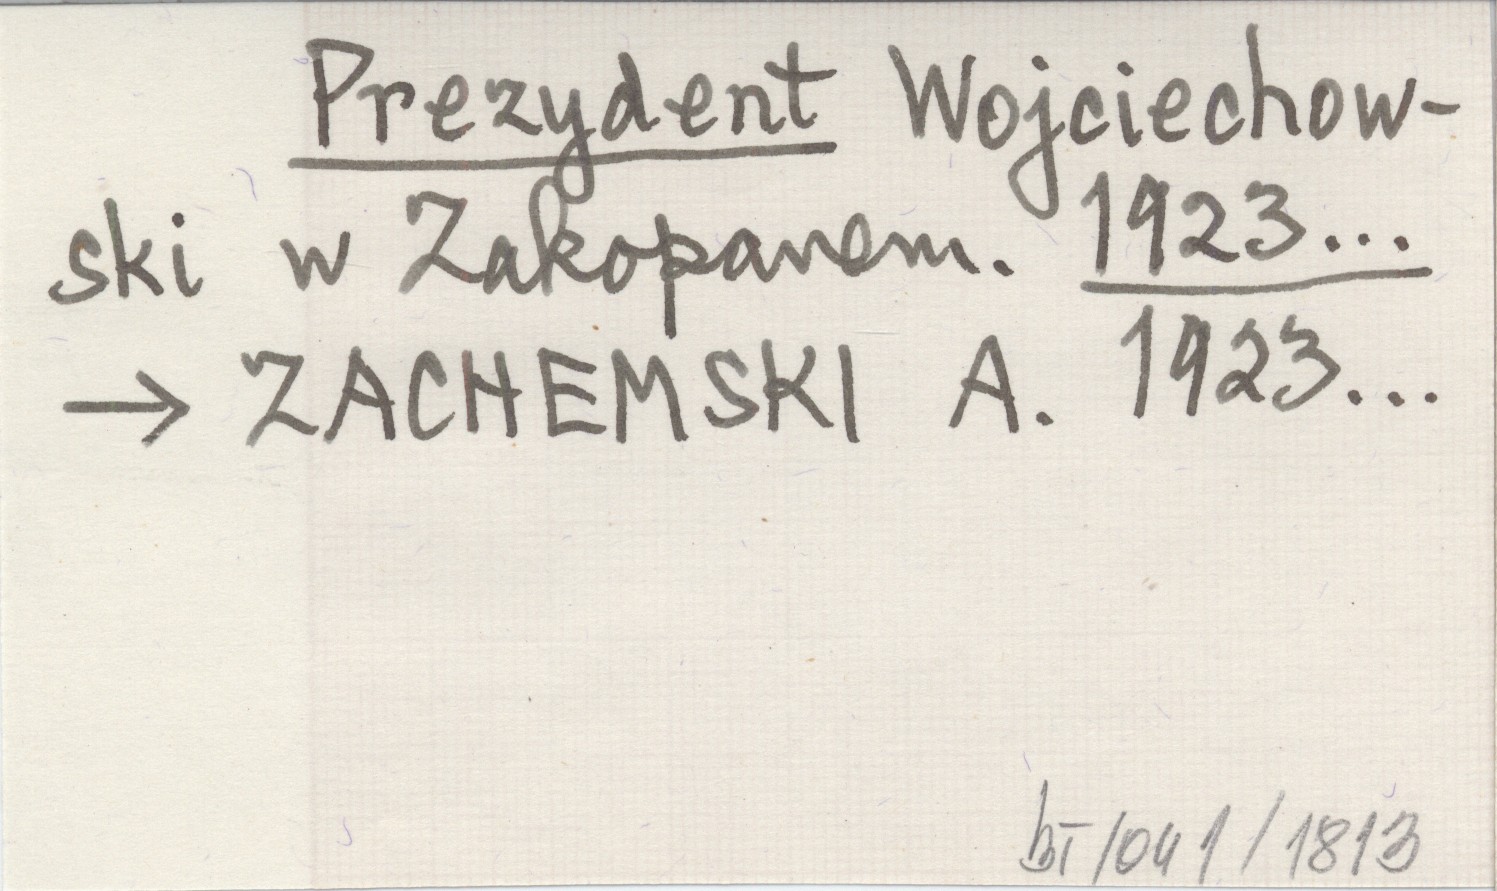 Prezydent Wojciechow-
ski w Zakopanem. 1923...
→ ZACHEMSKI A. 1923...
bT/041/1813